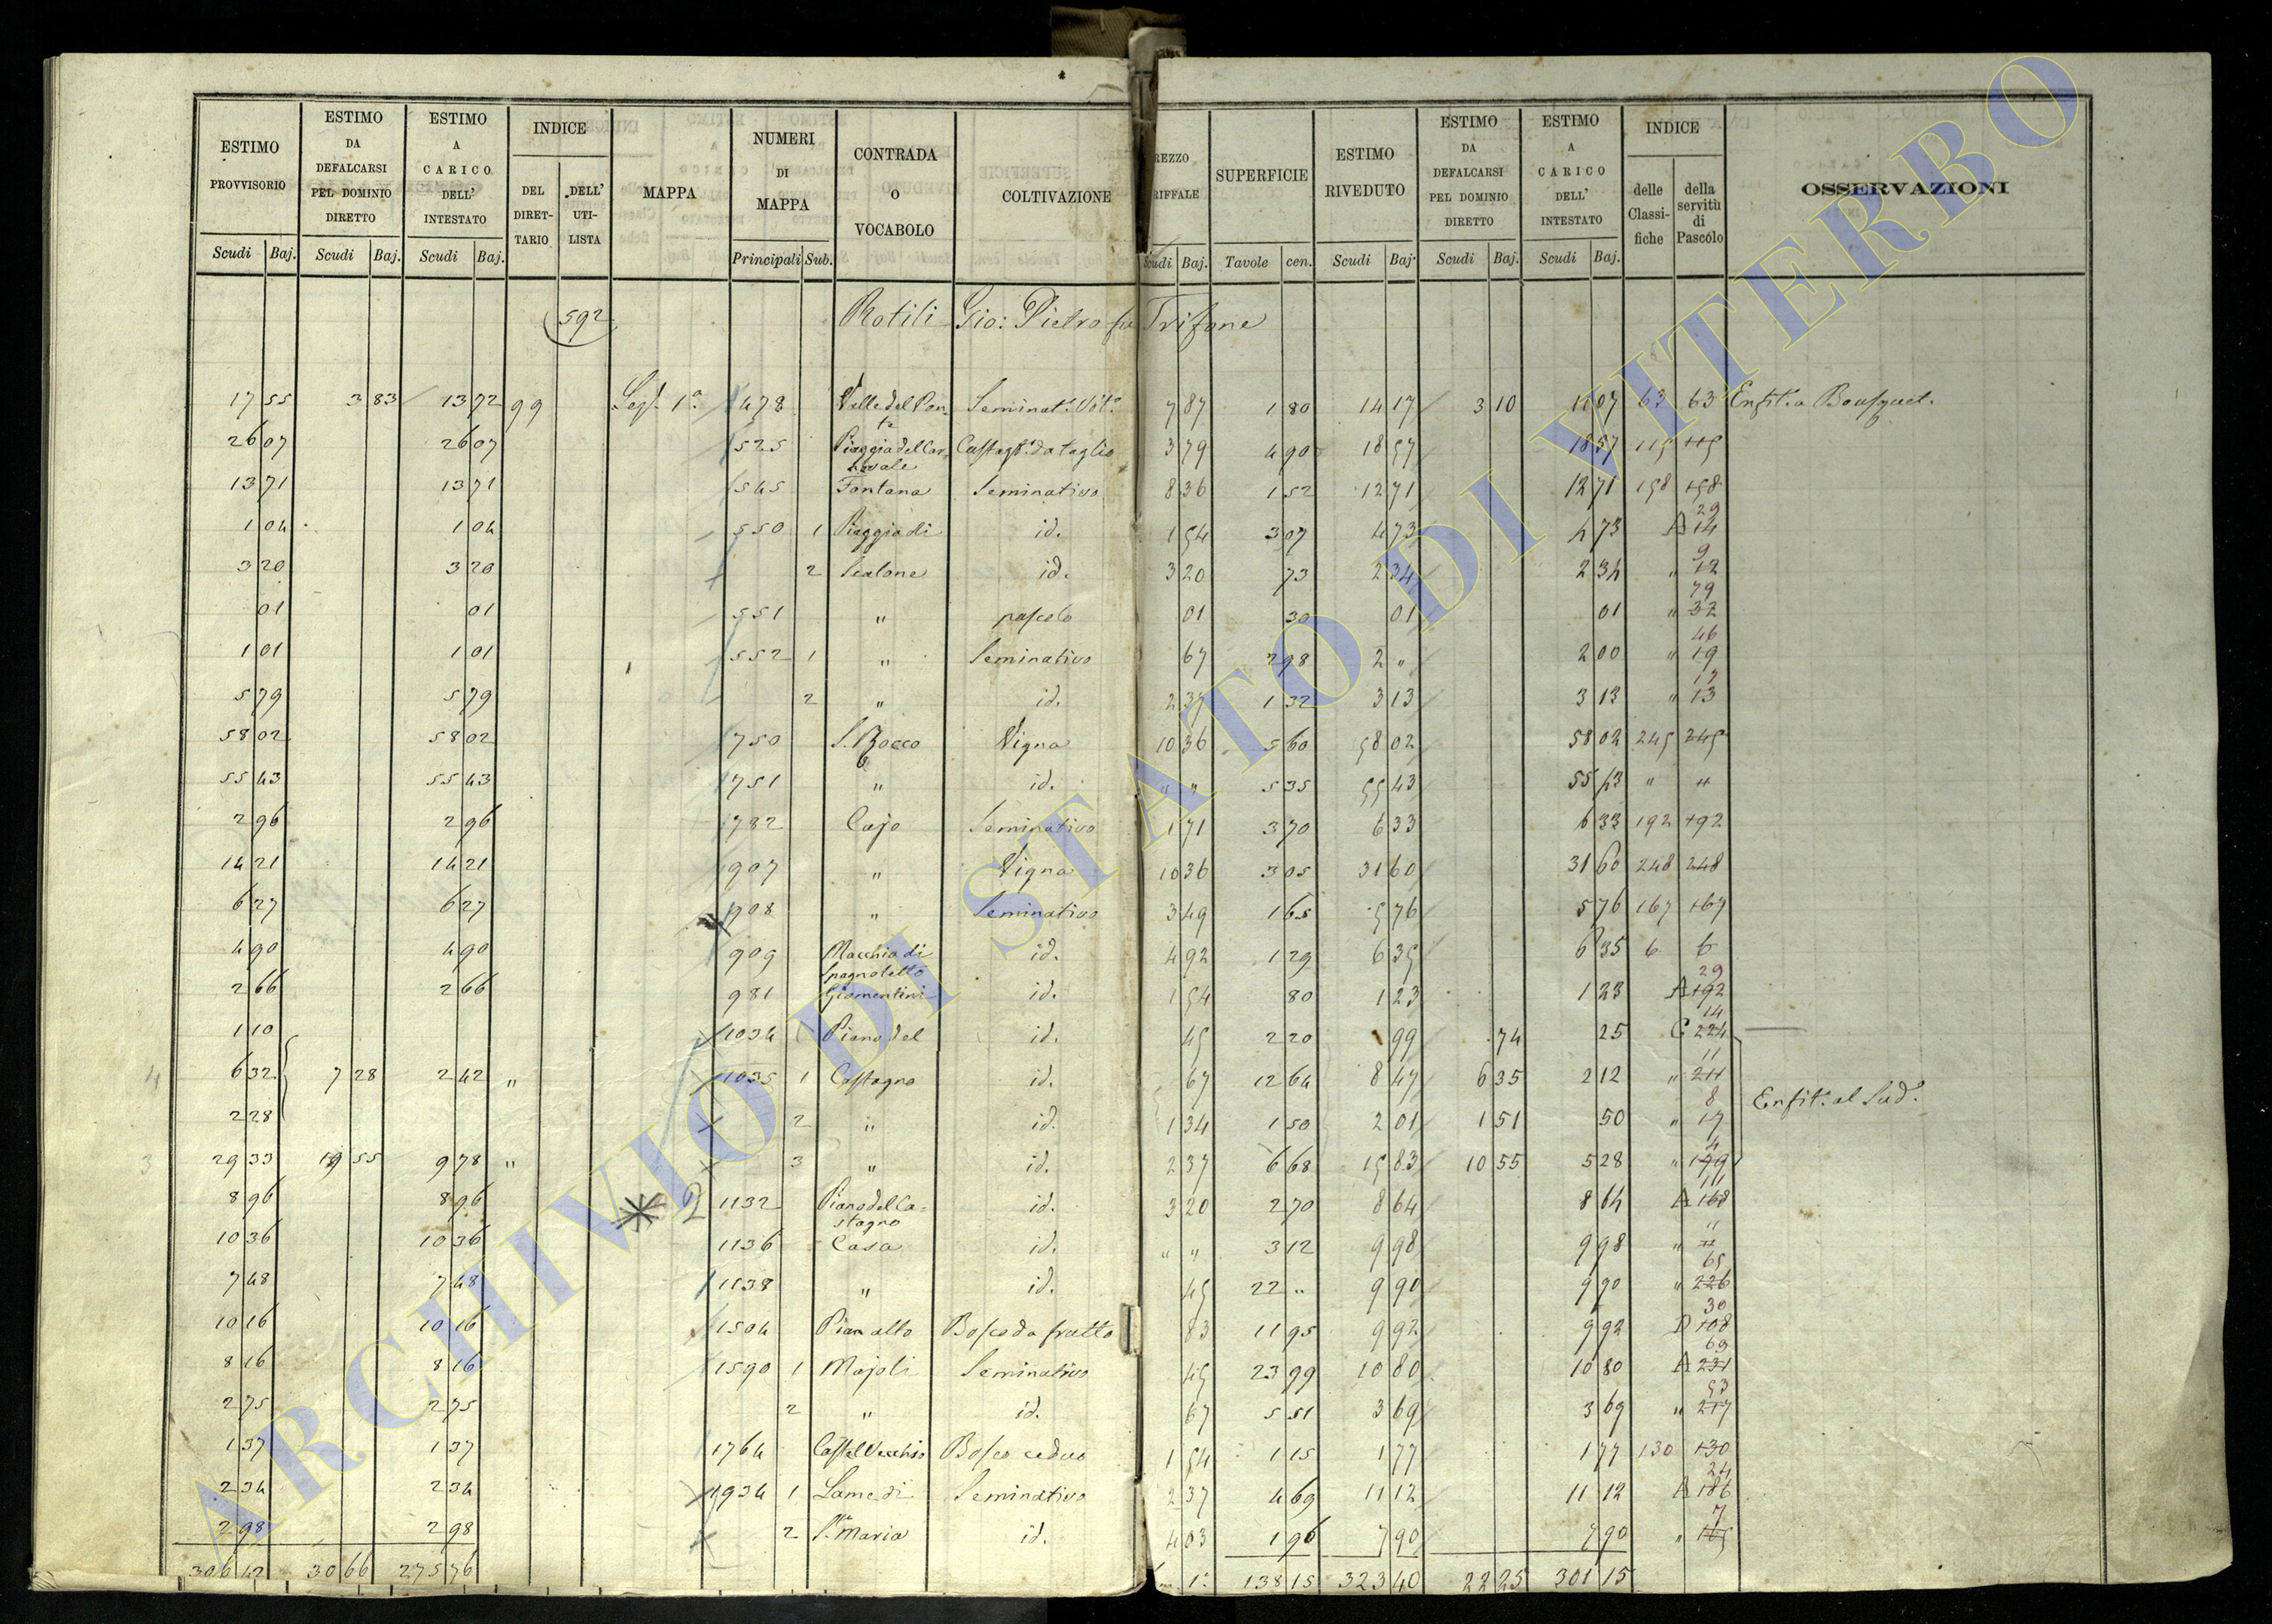 ESTIMO PROVVISORIO Scudi Baj. | ESTIMO DA DEFALCARSI PEL DOMINIO DIRETTO Scudi Baj. | ESTIMO A CARICO DELL' INTESTATO Scudi Baj. | INDICE DEL DIRETTARIO DELL' UTILISTA | MAPPA | NUMERI DI MAPPA Principali Sub. | CONTRADA O VOCABOLO | COLTIVAZIONE | REZZO RIFFALE Scudi Baj. | SUPERFICIE Tavole cen. | ESTIMO RIVEDUTO Scudi Baj. | ESTIMO DA DEFALCARSI PEL DOMINIO DIRETTO Scudi Baj. | ESTIMO A CARICO DELL' INTESTATO Scudi Baj. | INDICE delle Classifiche della servitù di Pascolo | OSSERVAZIONI
592 Rotili Gio: Pietro fu Trifone
17 55 3 83 13 72 99 Sez. 1a. 478 Valle del Pon te Seminat. Vit. 7 87 1 80 14 17 3 10 11 07 63 63 Enfit. a Bousquet.
26 07 26 07 525 Piaggia del Car novale Castag. da taglio 3 79 4 90 18 57 18 57 115 115
13 71 13 71 545 Fontana Seminativo 8 36 1 52 12 71 12 71 158 158
1 04 1 04 550 1 Piaggia di id. 1 54 3 07 4 73 4 73 A 14 29
3 20 3 20 2 Scalone id. 3 20 73 2 34 2 34 " 12 9
01 01 551 " pascolo 01 30 01 01 " 32 79
1 01 1 01 552 1 " Seminativo 67 2 98 2 " 2 00 " 19 46
5 79 5 79 2 " id. 2 37 1 32 3 13 3 13 " 13 17
58 02 58 02 750 S. Rocco Vigna 10 36 5 60 58 02 58 02 245 245
55 43 55 43 751 " id. " " 5 35 55 43 55 43 " "
2 96 2 96 782 Cajo Seminativo 1 71 3 70 6 33 6 33 192 192
14 21 14 21 907 " Vigna 10 36 3 05 31 60 31 60 248 248
6 27 6 27 908 " Seminativo 3 49 1 65 5 76 5 76 167 167
4 90 4 90 909 Macchia di Spagnoletto id. 4 92 1 29 6 35 6 35 6 6
2 66 2 66 981 Giomentini id. 1 54 80 1 23 1 23 A 192 29
1 10 1034 Piano del id. 45 2 20 99 74 25 C 224 14
4 6 32 7 28 2 42 " 1035 1 Castagno id. 67 12 64 8 47 6 35 2 12 " 211 11
2 28 2 " id. 1 34 1 50 2 01 1 51 50 " 17 8 Enfit. al Sud.
3 29 33 19 55 9 78 " 3 " id. 2 37 6 68 15 83 10 55 5 28 " 179 4
8 96 8 96 2 1132 Piano del Ca= stagno id. 3 20 2 70 8 64 8 64 A 168 11
10 36 10 36 1136 Casa id. " " 3 12 9 98 9 98 " " "
7 48 7 48 1138 " id. 45 22 " 9 90 9 90 " 226 65
10 16 10 16 1504 Pian alto Bosco da frutto 83 11 95 9 92 9 92 D 108 30
8 16 8 16 1590 1 Majoli Seminativo 45 23 99 10 80 10 80 A 231 69
2 75 2 75 2 " id. 67 5 51 3 69 3 69 " 217 53
1 37 1 37 1764 Castel Vecchio Bosco ceduo 1 54 1 15 1 77 1 77 130 130
2 34 2 34 1934 1 Lame di Seminativo 2 37 4 69 11 12 11 12 A 186 24
2 98 2 98 2 S. Maria id. 4 03 1 96 7 90 7 90 " 105 7
306 42 30 66 275 76 1a. 138 15 323 40 22 25 301 15
ARCHIVIO DI STATO DI VITERBO